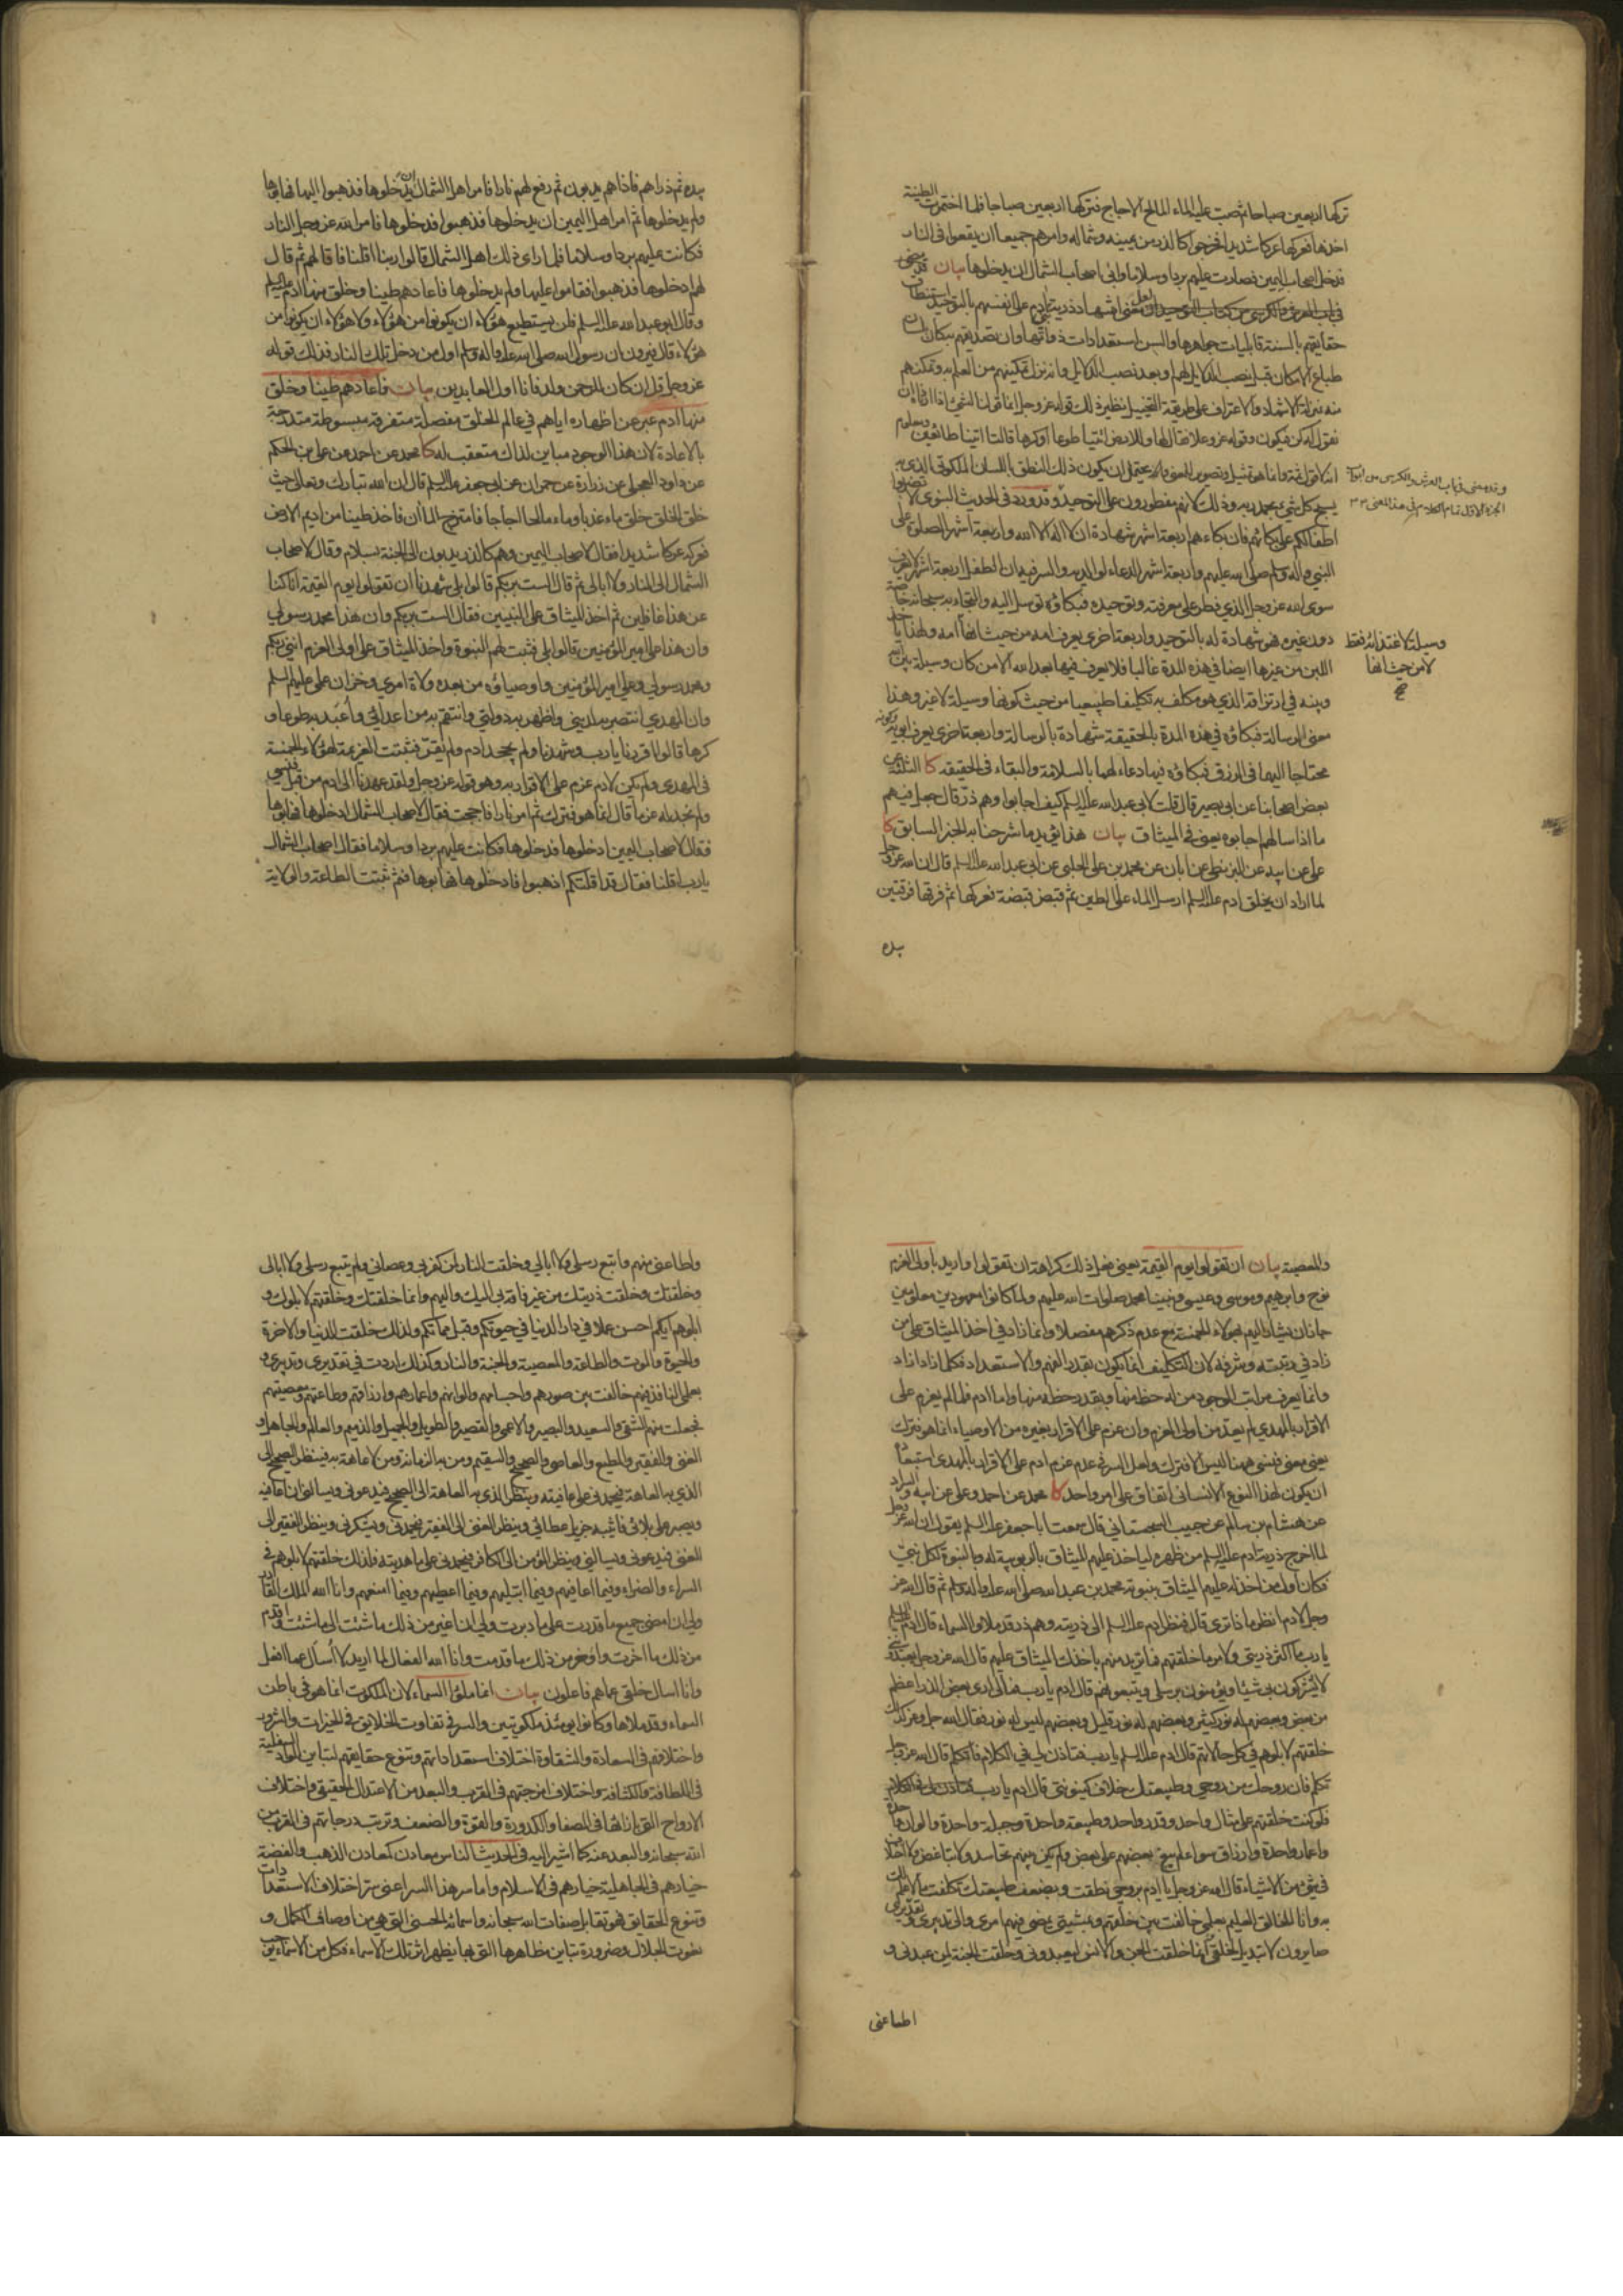 تركها اربعين صباحا ثم صب عليها الماء المالح الاجاج فتركها اربعين صباحا فلما اختمرت الطينة
اخذها فعركها عركا شديدا فخرجوا كالذر من يمينه وشماله وامرهم جميعا ان يقعوا في النار
فدخل اصحاب اليمين فصارت عليهم بردا وسلاما وابى اصحاب الشمال ان يدخلوها بيان قد مضى
في باب العرش والكرسي من كتاب التوحيد
حقايقهم بالسنة قابليات جواهرها والسن استعدادات ذواتها وان تصديقهم به كان بلسان
طباع الامكان قبل نصب الدلايل لهم وبعد نصب الدلايل وانه نزل تمكينهم من العلم به وتمكنهم
منه بمنزلة الاشهاد والاعتراف على طريقة التخييل نظير ذلك قوله عز وجل انما قولنا لشيء اذا اردناه ان
نقول له كن فيكون وقوله عز وعلا فقال لها وللارض ائتيا طوعا او كرها قالتا اتينا طائعين ومعلوم
انه لا قول ثمة وانما هو تمثيل وتصوير للمعنى وانه يحتمل ان يكون ذلك النطق باللسان الملكوتي الذي به
يسبح كل شيء بحمد ربه وذلك لانهم مفطورون على التوحيد وقد ورد في الحديث النبوي لا تضربوا
اطفالكم على بكائهم فان بكاءهم اربعة اشهر شهادة ان لا اله الا الله واربعة اشهر الصلوة على
النبي واله صلى الله عليهم واربعة اشهر الدعاء لوالديه والسر فيه ان الطفل اربعة اشهر لا يعرف
سوى الله عز وجل الذي فطر على معرفته وتوحيده فبكاؤه توسل اليه والتجاء به سبحانه خاصة
دون غيره فهو شهادة له بالتوحيد واربعة اخرى يعرف امه من حيث انها امه ولهذا ياخذ
اللبن من غيرها ايضا في هذه المدة غالبا فلا يعرف فيها بعد الله الا من كان وسيلة بين الله
وبينه في ارتزاقه الذي هو مكلف به تكليفا طبيعيا من حيث كونها وسيلة لا غير وهذا
معنى الرسالة فبكاؤه في هذه المدة بالحقيقة شهادة بالرسالة واربعة اخرى يعرف ابويه وكونه
محتاجا اليهما في الرزق فبكاؤه فيها دعاء لهما بالسلامة والبقاء في الحقيقه كا الثلثة عن
بعض اصحابنا عن ابي بصير قال قلت لابي عبد الله عليه السلم كيف اجابوا وهم ذر قال جعل فيهم
ما اذا سالهم اجابوه يعني في الميثاق بيان هذا يؤيد ما شرحنا به الخبر السابق كا
علي عن ابيه عن البزنطي عن ابان عن محمد بن علي الحلبي عن ابي عبد الله عليه السلم قال ان الله عز وجل
لما اراد ان يخلق ادم عليه السلم ارسل الماء على الطين ثم قبض قبضة فعركها ثم فرقها فرقتين
بيده
وقد مضى في باب العرش والكرسي من ابواب
الجزء الاول تمام الكلام في هذا المعنى
وسيلة لاغتذائه فقط
لا من حيث انها
صح
بيده ثم ذراهم فاذا هم يدبون ثم رفع لهم نارا فامر اهل الشمال ان يدخلوها فذهبوا اليها فهابوها
ولم يدخلوها ثم امر اهل اليمين ان يدخلوها فذهبوا فدخلوها فامر الله عز وجل النار
فكانت عليهم بردا وسلاما فلما راى ذلك اهل الشمال قالوا ربنا اقلنا فاقالهم ثم قال
لهم ادخلوها فذهبوا فقاموا عليها ولم يدخلوها فاعادهم طينا وخلق منها ادم عليه السلم
وقال ابو عبد الله عليه السلم فلن يستطيع هؤلاء ان يكونوا من هؤلاء ولا هؤلاء ان يكونوا من
هؤلاء قال فيرون ان رسول الله صلى الله عليه واله وسلم اول من دخل تلك النار فذلك قوله
عز وجل قل ان كان للرحمن ولد فانا اول العابدين بيان فاعادهم طينا وخلق
منها ادم عبر عن اظهاره اياهم في عالم الخلق مفصلة متفرقة مبسوطة متدرجة
بالاعادة لان هذا الوجود مباين لذاك متعقب له كا محمد عن احمد عن علي بن الحكم
عن داود العجلي عن زرارة عن حمران عن ابي جعفر عليه السلم قال ان الله تبارك وتعالى حيث
خلق الخلق خلق ماء عذبا وماء مالحا اجاجا فامتزج الماآن فاخذ طينا من اديم الارض
فعركه عركا شديدا فقال لاصحاب اليمين وهم كالذر يدبون الى الجنة بسلام وقال لاصحاب
الشمال الى النار ولا ابالي ثم قال الست بربكم قالوا بلى شهدنا ان تقولوا يوم القيمة انا كنا
عن هذا غافلين ثم اخذ الميثاق على النبيين فقال الست بربكم وان هذا محمد رسولي
وان هذا علي امير المؤمنين قالوا بلى فثبتت لهم النبوة واخذ الميثاق على اولي العزم انني ربكم
ومحمد رسولي وعلي امير المؤمنين واوصياؤه من بعده ولاة امري وخزان علمي عليهم السلم
وان المهدي انتصر به لديني واظهر به دولتي وانتقم به من اعدائي واعبد به طوعا و
كرها قالوا اقررنا يا رب وشهدنا ولم يجحد ادم ولم يقر فثبتت العزيمة لهؤلاء الخمسة
في المهدي ولم يكن لادم عزم على الاقرار به وهو قوله عز وجل ولقد عهدنا الى ادم من قبل فنسي
ولم نجد له عزما قال انما هو فترك ثم امر نارا فاججت فقال لاصحاب الشمال ادخلوها فهابوها
فقال لاصحاب اليمين ادخلوها فدخلوها فكانت عليهم بردا وسلاما فقال اصحاب الشمال
يا رب اقلنا فقال قد اقلتكم اذهبوا فادخلوها فهابوها فثم ثبتت الطاعة والولاية
والمعصية بيان ان تقولوا يوم القيمة يعني فعل ذلك كراهة ان تقولوا واريد باولي العزم
نوح وابرهيم وموسى وعيسى ونبينا محمد صلوات الله عليهم ولما كانوا معهودين معلومين
جاز ان يشار اليهم بهؤلاء الخمسة مع عدم ذكرهم مفصلا وانما زاد في اخذ الميثاق على من
زاد في رتبته وشرفه لان التكليف انما يكون بقدر الفهم والاستعداد فكلما زاد زاد
وانما يعرف مراتب الوجود من له حظ منها وبقدر حظه منها واما ادم فلما لم يعزم على
الاقرار بالمهدي لم يعد من اولي العزم وان عزم على الاقرار بغيره من الاوصياء انما هو فترك
يعني معنى فنسي ههنا ليس الا فترك ولعل السر في عدم عزم ادم على الاقرار بالمهدي استبعاد
ان يكون لهذا النوع الانساني اتفاق على امر واحد كا محمد عن احمد وعلي عن ابيه والسراد
عن هشام بن سالم عن حبيب السجستاني قال سمعت ابا جعفر عليه السلم يقول ان الله عز وجل
لما اخرج ذرية ادم عليه السلم من ظهره لياخذ عليهم الميثاق بالربوبية له وبالنبوة لكل نبي
فكان اول من اخذ له عليهم الميثاق بنبوته محمد بن عبد الله صلى الله عليه واله وسلم ثم قال الله عز
وجل لادم انظر ما ذا ترى قال فنظر ادم عليه السلم الى ذريته وهم ذر قد ملاوا السماء قال ادم عليه السلم
يا رب ما اكثر ذريتي ولامر ما خلقتهم فما تريد منهم باخذك الميثاق عليهم قال الله عز وجل يعبدونني
لا يشركون بي شيئا ويؤمنون برسلي ويتبعونهم قال ادم يا رب فما لي ارى بعض الذر اعظم
من بعض وبعضهم له نور كثير وبعضهم له نور قليل وبعضهم ليس له نور فقال الله جل وعز كذلك
خلقتهم لابلوهم في كل حالاتهم قال ادم عليه السلم يا رب فتاذن لي في الكلام فاتكلم قال الله عز وجل
تكلم فان روحك من روحي وطبيعتك خلاف كينونتي قال ادم يا رب
فلو كنت خلقتهم على مثال واحد وقدر واحد وطبيعة واحدة وجبلة واحدة والوان واحدة
واعمار واحدة وارزاق سواء لم يبغ بعضهم على بعض ولم يكن بينهم تحاسد ولا تباغض ولا اختلاف
في شيء من الاشياء قال الله عز وجل يا ادم بروحي نطقت وبضعف طبيعتك تكلفت ما لا علم لك
به وانا الخالق العليم بعلمي خالفت بين خلقهم وبمشيتي يمضي فيهم امري والى تدبيري وتقديري
صايرون لا تبديل لخلقي انما خلقت الجن والانس ليعبدوني وخلقت الجنة لمن عبدني و
اطاعني
واطاعني منهم واتبع رسلي ولا ابالي وخلقت النار لمن كفر بي وعصاني ولم يتبع رسلي ولا ابالي
وخلقتك وخلقت ذريتك من غير فاقة بي اليك واليهم وانما خلقتك وخلقتهم لابلوك و
ابلوهم ايكم احسن عملا في دار الدنيا في حيوتكم وقبل مماتكم ولذلك خلقت الدنيا والاخرة
والحيوة والموت والطاعة والمعصية والجنة والنار وكذلك اردت في تقديري وتدبيري و
بعلمي النافذ فيهم خالفت بين صورهم واجسامهم والوانهم واعمارهم وارزاقهم وطاعتهم ومعصيتهم
فجعلت منهم الشقي والسعيد والبصير والاعمى والقصير والطويل والجميل والذميم والعالم والجاهل و
الغني والفقير والمطيع والعاصي والصحيح والسقيم ومن به الزمانة ومن لا عاهة به فينظر الصحيح الى
الذي به العاهة فيحمدني على عافيته وينظر الذي به العاهة الى الصحيح فيدعوني ويسالني ان اعافيه
ويصبر على بلائي فاثيبه جزيل عطائي وينظر الغني الى الفقير فيحمدني ويشكرني وينظر الفقير الى
الغني فيدعوني ويسالني وينظر المؤمن الى الكافر فيحمدني على ما هديته فلذلك خلقتهم لابلوهم في
السراء والضراء وفيما اعافيهم وفيما ابتليهم وفيما اعطيهم وفيما امنعهم وانا الله الملك القادر
ولي ان امضي جميع ما قدرت على ما دبرت ولي ان اغير من ذلك ما شئت الى ما شئت واقدم
من ذلك ما اخرت واؤخر من ذلك ما قدمت وانا الله الفعال لما اريد لا اسال عما افعل
وانا اسال خلقي عما هم فاعلون بيان انما ملؤا السماء لان الملكوت انما هو في باطن
السماء وقد ملاها وكانوا يومئذ ملكوتيين والسر في تفاوت الخلايق في الخيرات والشرور
واختلافهم في السعادة والشقاوة اختلاف استعداداتهم وتنوع حقايقهم لتباين المواد السفلية
في اللطافة والكثافة واختلاف امزجتهم في القرب والبعد من الاعتدال الحقيقي واختلاف
الارواح التي بازائها في الصفاء والكدورة والقوة والضعف وترتب درجاتهم في القرب من
الله سبحانه والبعد عنه كما اشير اليه في الحديث الناس معادن كمعادن الذهب والفضة
خيارهم في الجاهلية خيارهم في الاسلام واما سر هذا السر اعني سر اختلاف الاستعدادات
وتنوع الحقايق فهو تقابل صفات الله سبحانه واسمائه الحسنى التي هي من اوصاف الكمال و
نعوت الجلال وضرورة تباين مظاهرها التي بها يظهر اثر تلك الاسماء فكل من الاسماء يوجب